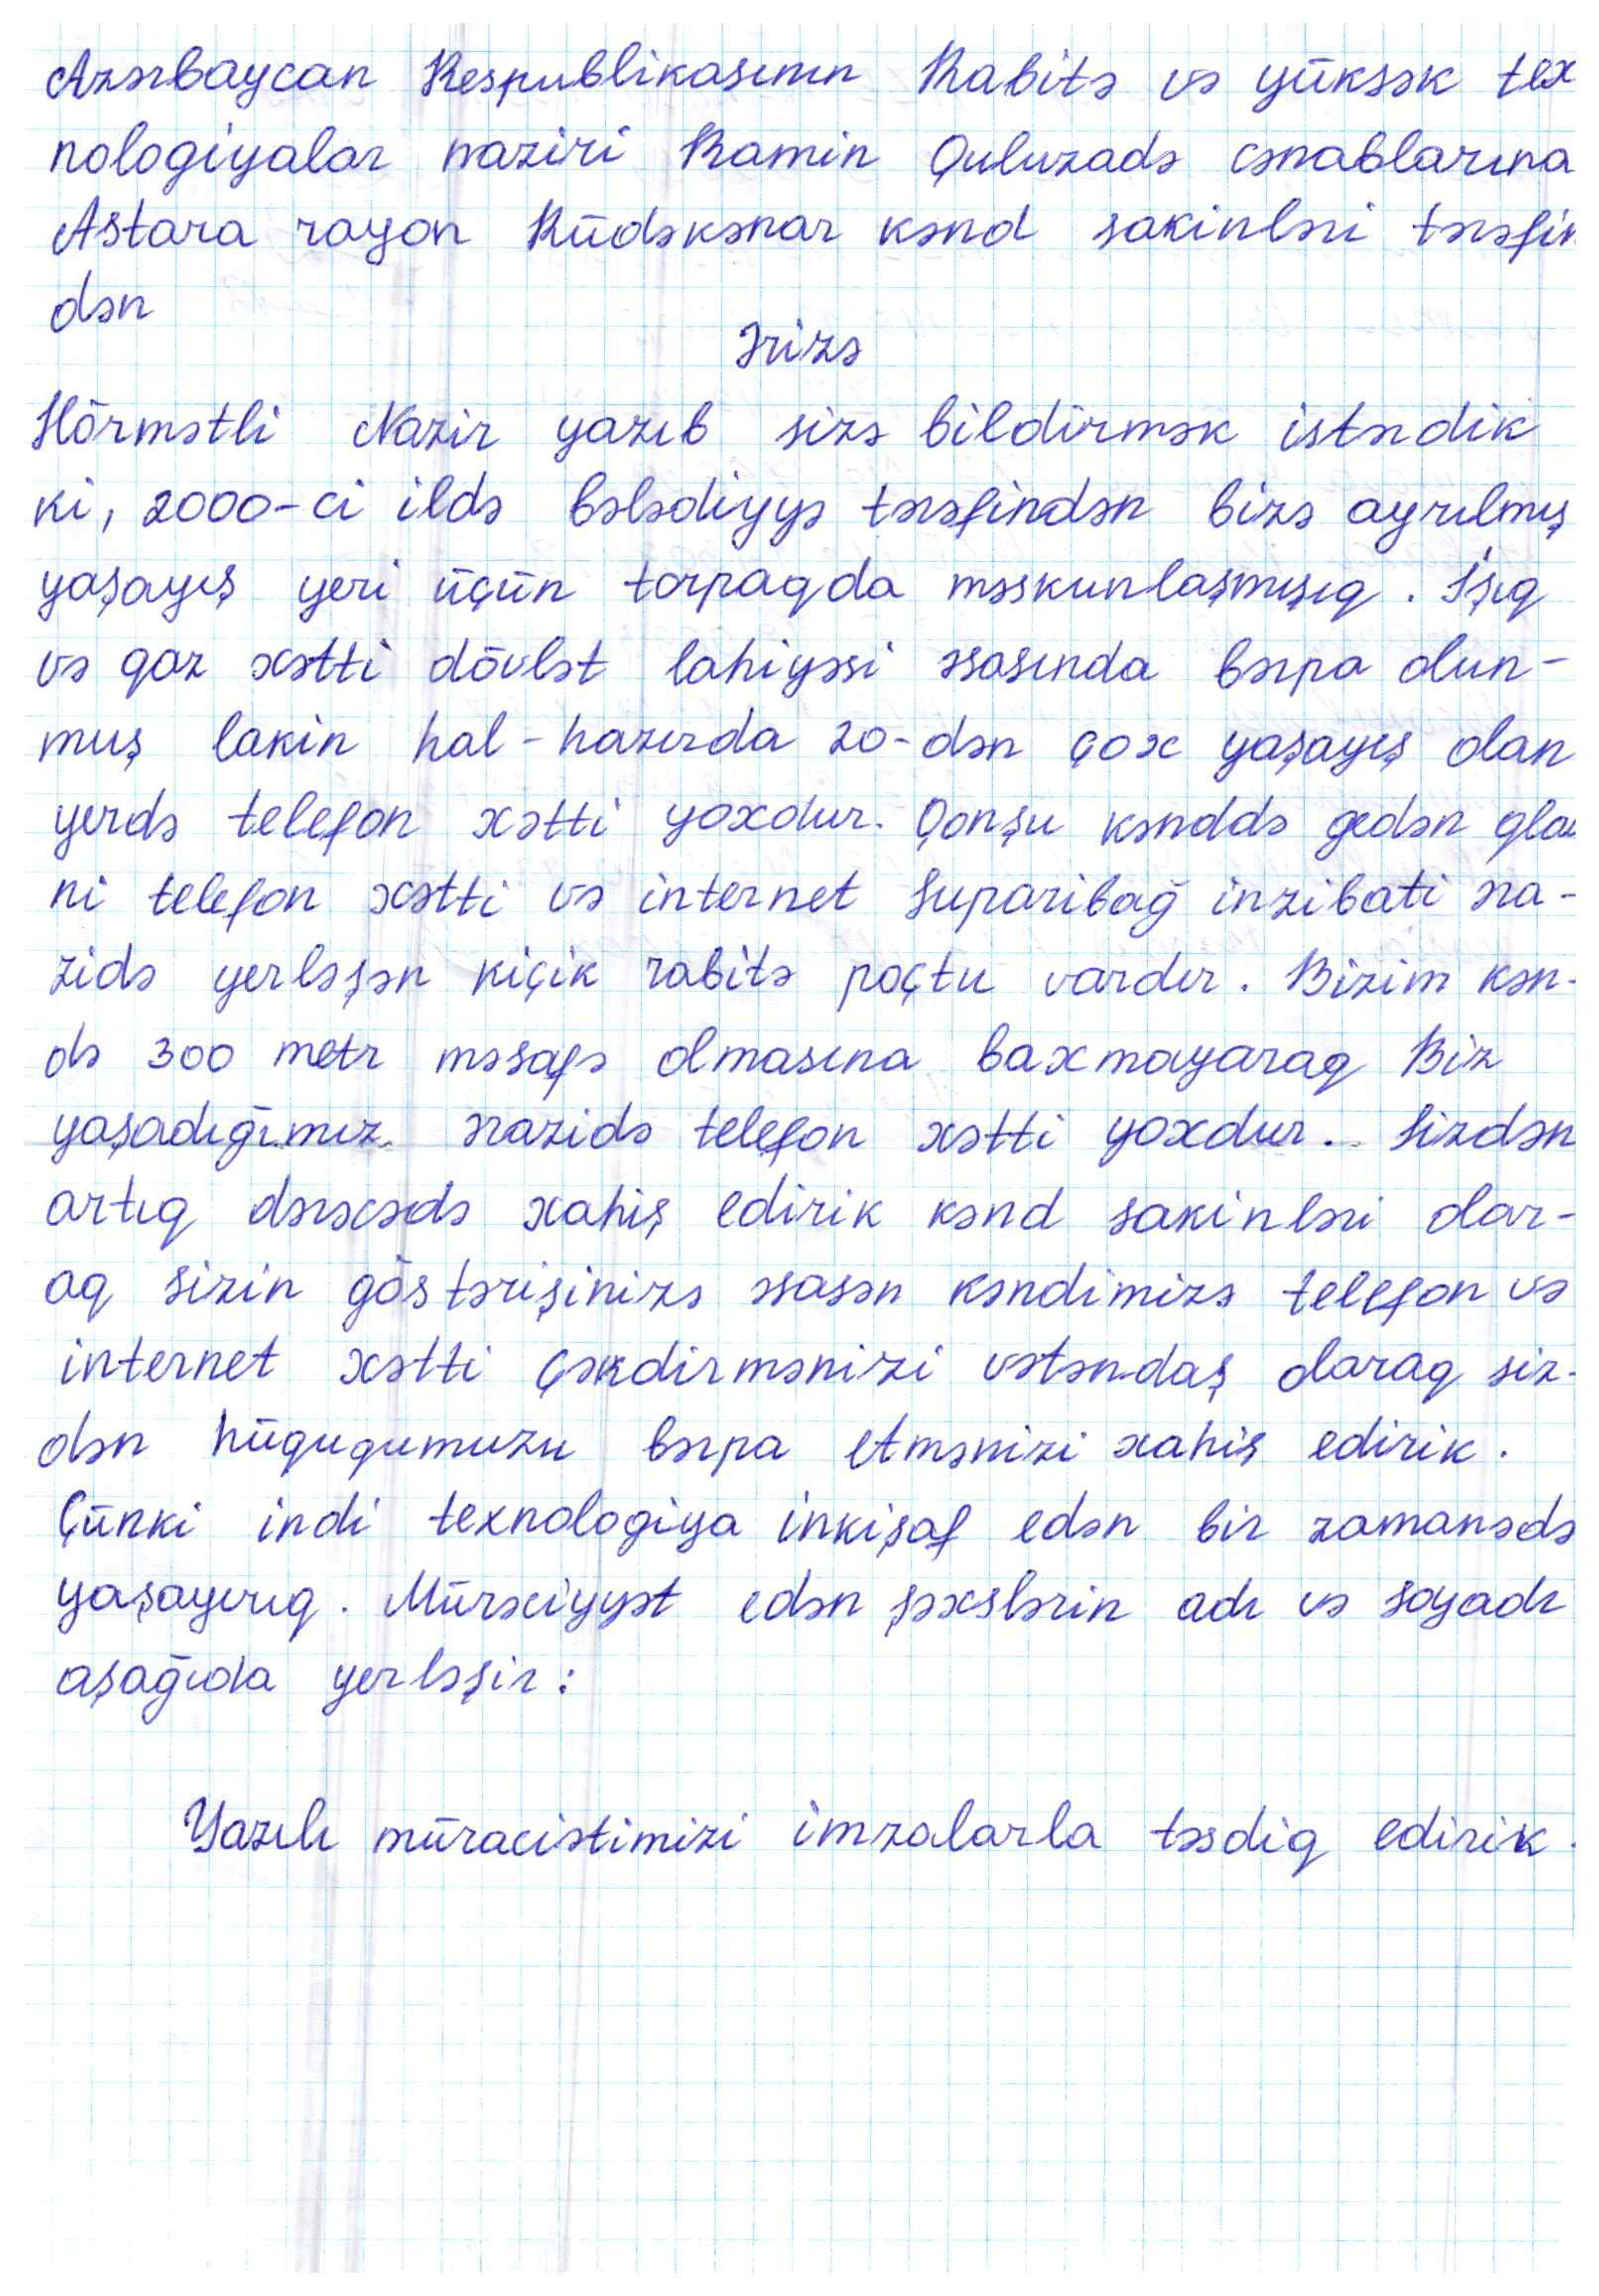 Azərbaycan Respublikasının Rabitə və yüksək tex
nologiyalar naziri Ramin Quluzadə cənablarına
Astara rayon Rüdəkənar kənd sakinləri tərəfin
dən
Ərizə
Hörmətli Nazir yazıb sizə bildirmək istərdik
ki, 2000-ci ildə bələdiyyə tərəfindən bizə ayrılmış
yaşayış yeri üçün torpaqda məskunlaşmışıq. İşıq
və qaz xətti dövlət lahiyəsi əsasında bərpa olun-
muş lakin hal-hazırda 20-dən çox yaşayış olan
yerdə telefon xətti yoxdur. Qonşu kənddə gedən
ni telefon xətti və internet Suparibağ inzibati əra-
zidə yerləşən kiçik rabitə poçtu vardır. Bizim kən-
də 300 metr məsafə olmasına baxmayaraq Biz
yaşadığımız ərazidə telefon xətti yoxdur. Sizdən
artıq dərəcədə xahiş edirik kənd sakinləri olar-
aq sizin göstərişinizə əsasən kəndimizə telefon və
internet xətti çəkdirmənizi vətəndaş olaraq siz-
dən hüququmuzu bərpa etmənizi xahiş edirik.
Çünki indi texnologiya inkişaf edən bir zamanədə
yaşayırıq. Mürəciyyət edən şəxslərin adı və soyadı
aşağıda yerləşir:
Yazılı müraciətimizi imzalarla təsdiq edirik.